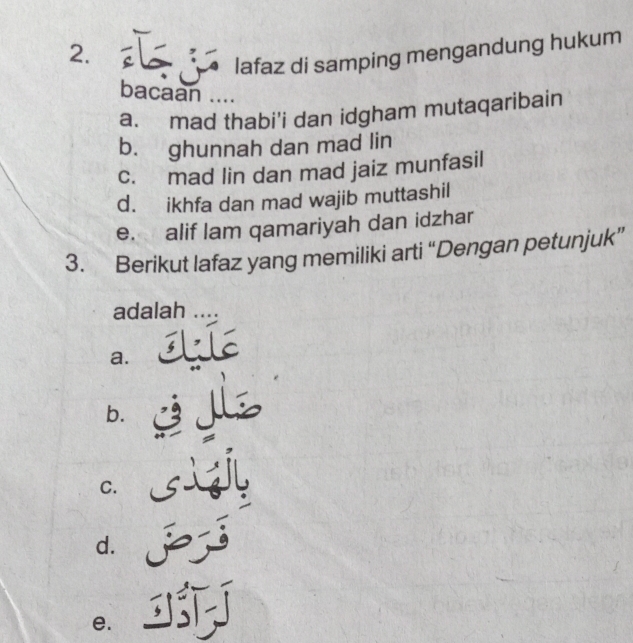 2. مَنْ جَآءَ lafaz di samping mengandung hukum
bacaan ....
a. mad thabi'i dan idgham mutaqaribain
b. ghunnah dan mad lin
c. mad lin dan mad jaiz munfasil
d. ikhfa dan mad wajib muttashil
e. alif lam qamariyah dan idzhar
3. Berikut lafaz yang memiliki arti “Dengan petunjuk”
adalah ....
a. عَلَيْكَ
b. فِيْ ضَلٰلٍ
c. بِالْهُدٰى
d. فَرَضَ
e. لَرَآدُّكَ